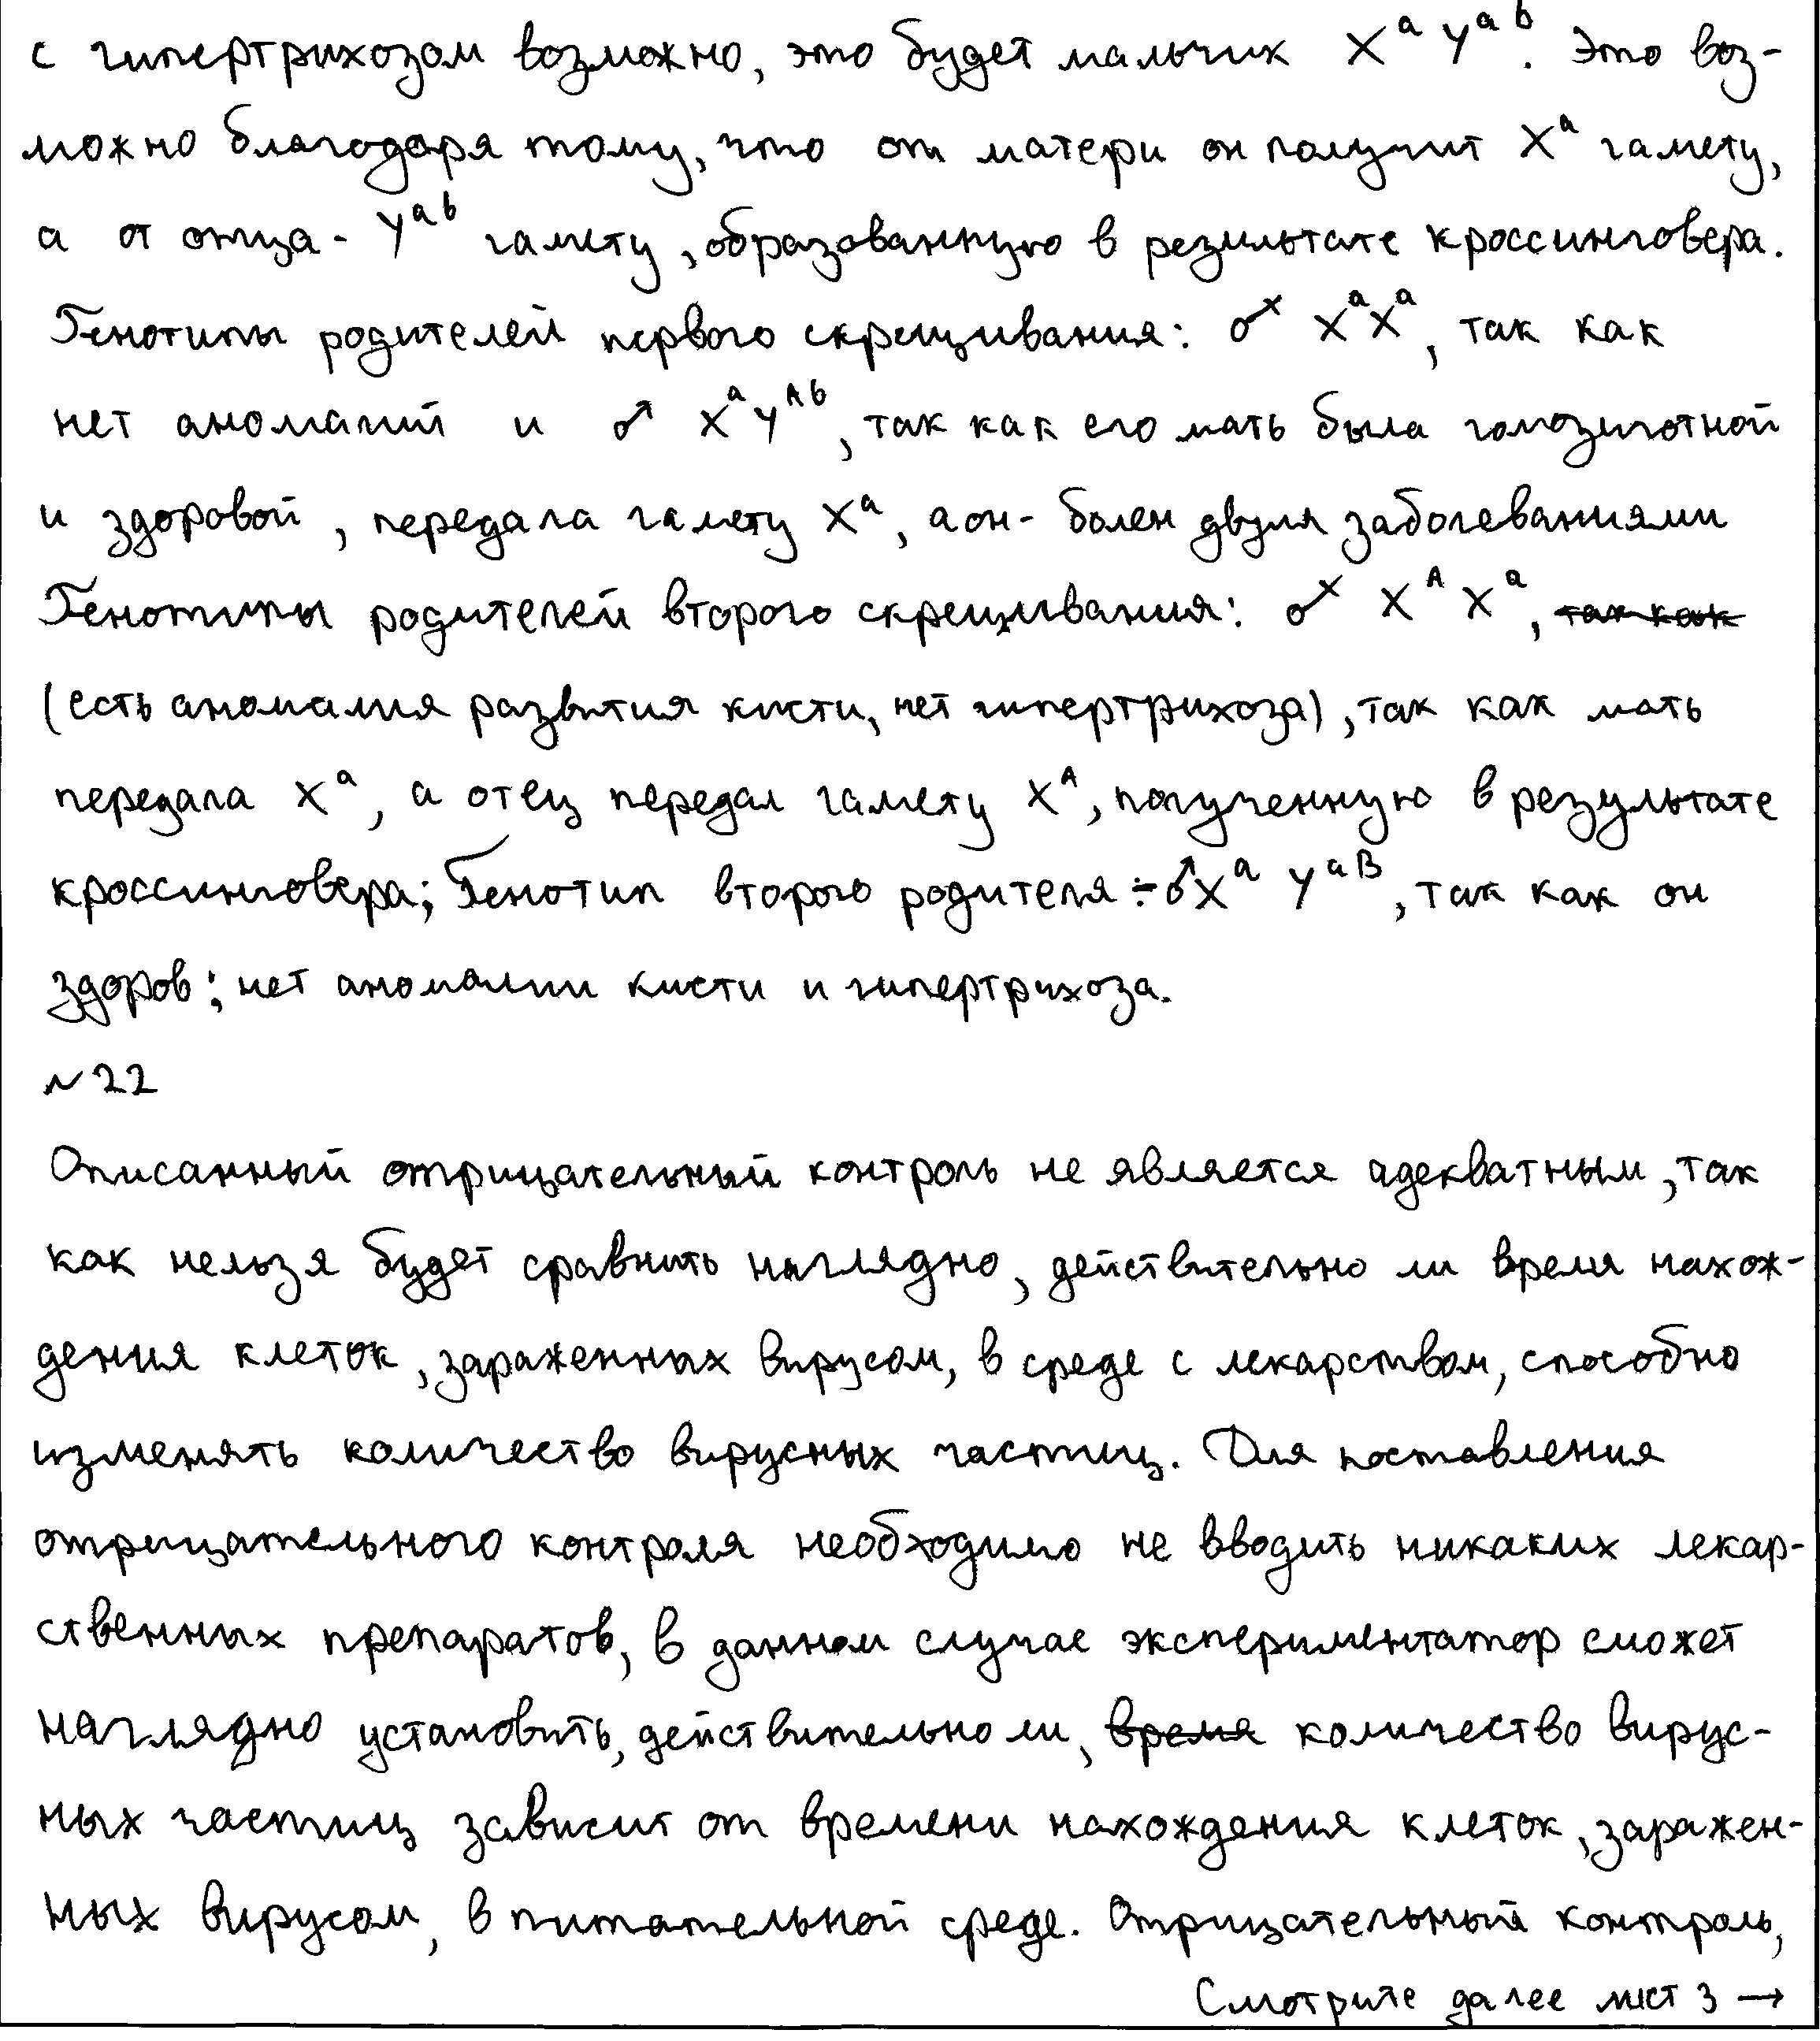 с гипертрихозом возможно, это будет мальчик XᵃYᵃᵇ. Это воз-
можно благодаря тому, что от матери он получит Xᵃ гамету,
а от отца - Yᵃᵇ гамету, образованную в результате кроссинговера.
Генотипы родителей первого скрещивания: ♀ XᵃXᵃ, так как
нет аномалий и ♂ XᵃYᴬᵇ, так как его мать была гомозиготной
и здоровой, передала гамету Xᵃ, а он - болен двумя заболеваниями
Генотипы родителей второго скрещивания: ♀ XᴬXᵃ, ~~так как~~
(есть аномалия развития кисти, нет гипертрихоза), так как мать
передала Xᵃ, а отец передал гамету Xᴬ, полученную в результате
кроссинговера; Генотип второго родителя - ♂XᵃYᵃᴮ, так как он
здоров; нет аномалии кисти и гипертрихоза.
№22
Описанный отрицательный контроль не является адекватным, так
как нельзя будет сравнить наглядно, действительно ли время нахож-
дения клеток, зараженных вирусом, в среде с лекарством, способно
изменять количество вирусных частиц. Для поставления
отрицательного контроля необходимо не вводить никаких лекар-
ственных препаратов, в данном случае экспериментатор сможет
наглядно установить, действительно ли, ~~время~~ количество вирус-
ных частиц зависит от времени нахождения клеток, заражен-
ных вирусом, в питательной среде. Отрицательный контроль,
Смотрите далее лист 3 →